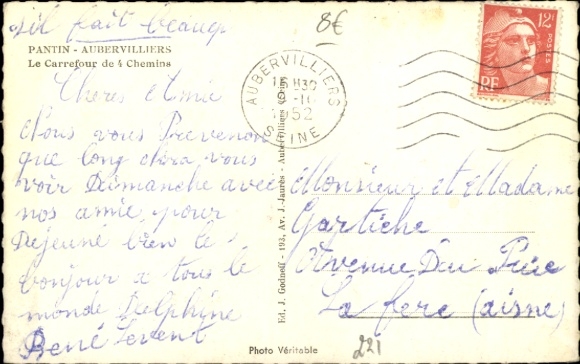 s'il fait beaup
8€
PANTIN - AUBERVILLIERS
Le Carrefour de 4 Chemins
Cheres Amie
Nous vous Prevenon
que long vous
voir Dimanche avec
nos amie pour
Dejeuné bien le
bonjour a tous le
monde Delphine
René Levent
Ed. J. Godneff - 193, Av. J.-Jaurès - Aubervilliers (Seine)
AUBERVILLIERS
SEINE
15 H30
52
12F
POSTES
RF
Monsieur et Madame
Gartiche
Avenue Du
La fere (aisne)
Photo Véritable
221